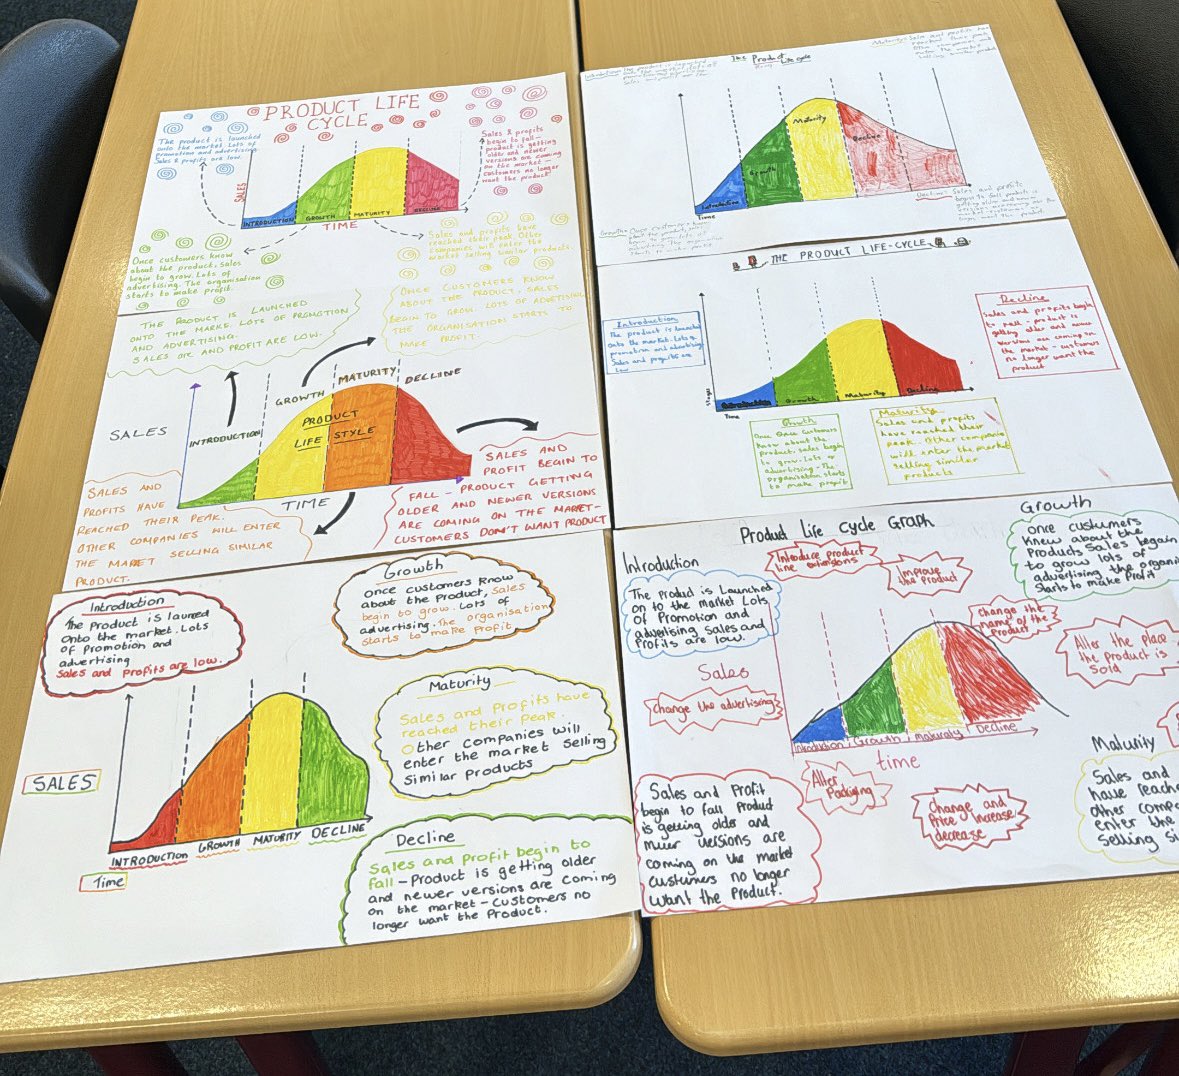 PRODUCT LIFE
CYCLE
The product is launched
onto the market. Lots of
promotion and advertising
Sales & profits are low.
Sales & profits
begin to fall -
product is getting
older and newer
versions are coming
on the market -
customers no longer
want the product
SALES
INTRODUCTION
GROWTH
MATURITY
DECLINE
TIME
Once customers know
about the product, sales
begin to grow. Lots of
advertising. The organisation
starts to make profit.
Sales and profits have
reached their peak. Other
companies will enter the
market selling similar products.
THE PRODUCT IS LAUNCHED
ONTO THE MARKE. LOTS OF PROMOTION
AND ADVERTISING.
SALES ARE AND PROFIT ARE LOW.
ONCE CUSTOMERS KNOW
ABOUT THE PRODUCT, SALES
BEGIN TO GROW. LOTS OF ADVERTISING
THE ORGANISATION STARTS TO
MAKE PROFIT.
SALES
INTRODUCTION
GROWTH
MATURITY
DECLINE
PRODUCT
LIFE STYLE
TIME
SALES AND
PROFITS HAVE
REACHED THEIR PEAK.
OTHER COMPANIES WILL ENTER
THE MARKET SELLING SIMILAR
PRODUCT.
SALES AND
PROFIT BEGIN TO
FALL - PRODUCT GETTING
OLDER AND NEWER VERSIONS
ARE COMING ON THE MARKET-
CUSTOMERS DON'T WANT PRODUCT
Introduction
The product is launed
onto the market. Lots
of Promotion and
advertising
Sales and profits are low.
Growth
once customers know
about the product, Sales
begin to grow. Lots of
advertising. The organisation
starts to make profit
Maturity
Sales and profits have
reached their peak.
Other companies will
enter the market selling
similar products
Decline
Sales and profit begin to
fall - Product is getting older
and newer versions are coming
on the market - customers no
longer want the product.
SALES
INTRODUCTION
GROWTH
MATURITY
DECLINE
Time
The Product Life cycle
Introduction
Growth
Maturity
Decline
Time
THE PRODUCT LIFE-CYCLE
Introduction
The product is launched
onto the market. Lots of
promotion and advertising
Sales and profits are
low
Decline
Sales and profits begin
to fall - product is
getting older and newer
versions are coming on
the market - customers
no longer want the
product
Growth
Maturity
Decline
Time
Growth
Once customers
know about the
product, sales begin
to grow. Lots of
advertising. The
organisation starts
to make profit
Maturity
Sales and profits
have reached their
peak. Other companies
will enter the market
selling similar
products
Product Life Cycle Graph
Introduction
The product is Launched
on to the market Lots
of Promotion and
advertising Sales and
Profits are low.
Introduce product
line extensions
Improve
the product
Growth
once custumers
Knew about the
Products Sales begain
to grow lots of
advertising the organi
Starts to make Profit
change the
name of the
Product
Alter the place
the product is
Sold
Sales
change the advertising
Introduction
Growth
maturaty
Decline
time
Alter
Packaging
Change and
Price increase/
decrease
Sales and Profit
begin to fall Product
is getting older and
versions are
coming on the market
customers no longer
want the Product.
Maturity
Sales and
have reach
other compa
enter the
Selling si